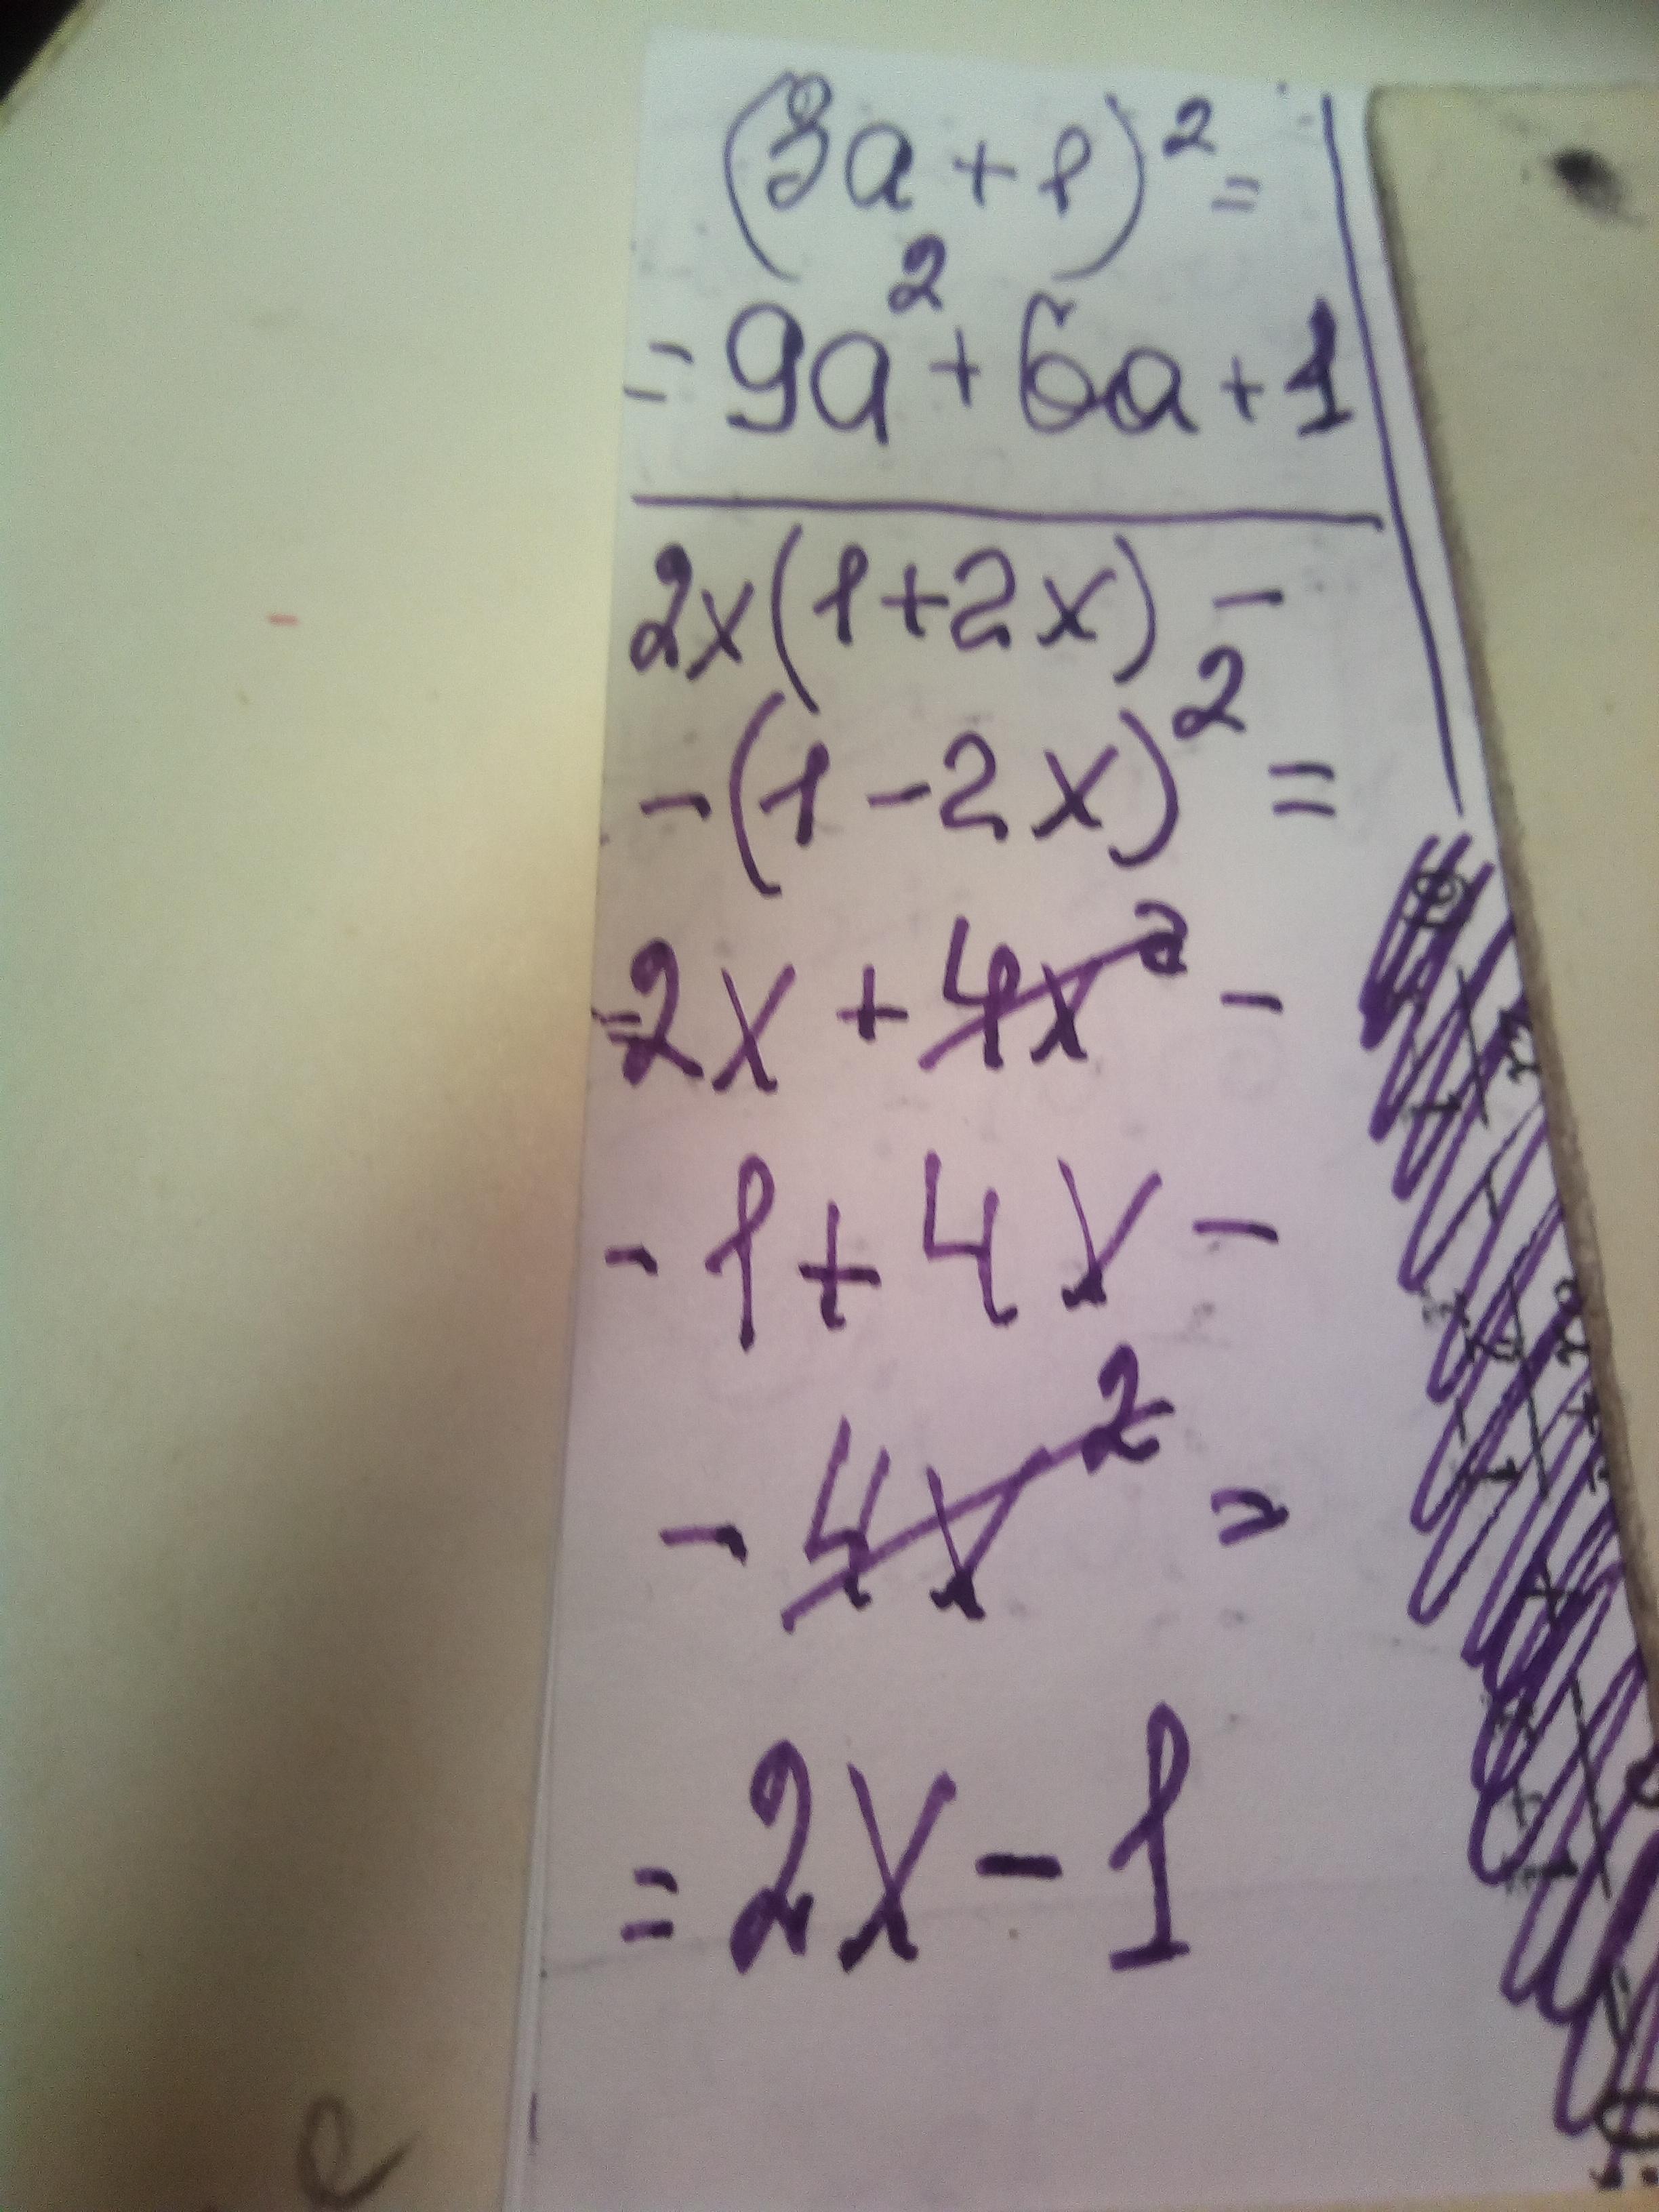 (3a+1)²=
=9a²+6a+1
2x(1+2x)-
-(1-2x)²=
=2x+4x²-
-1+4x-
-4x²=
=2x-1
e